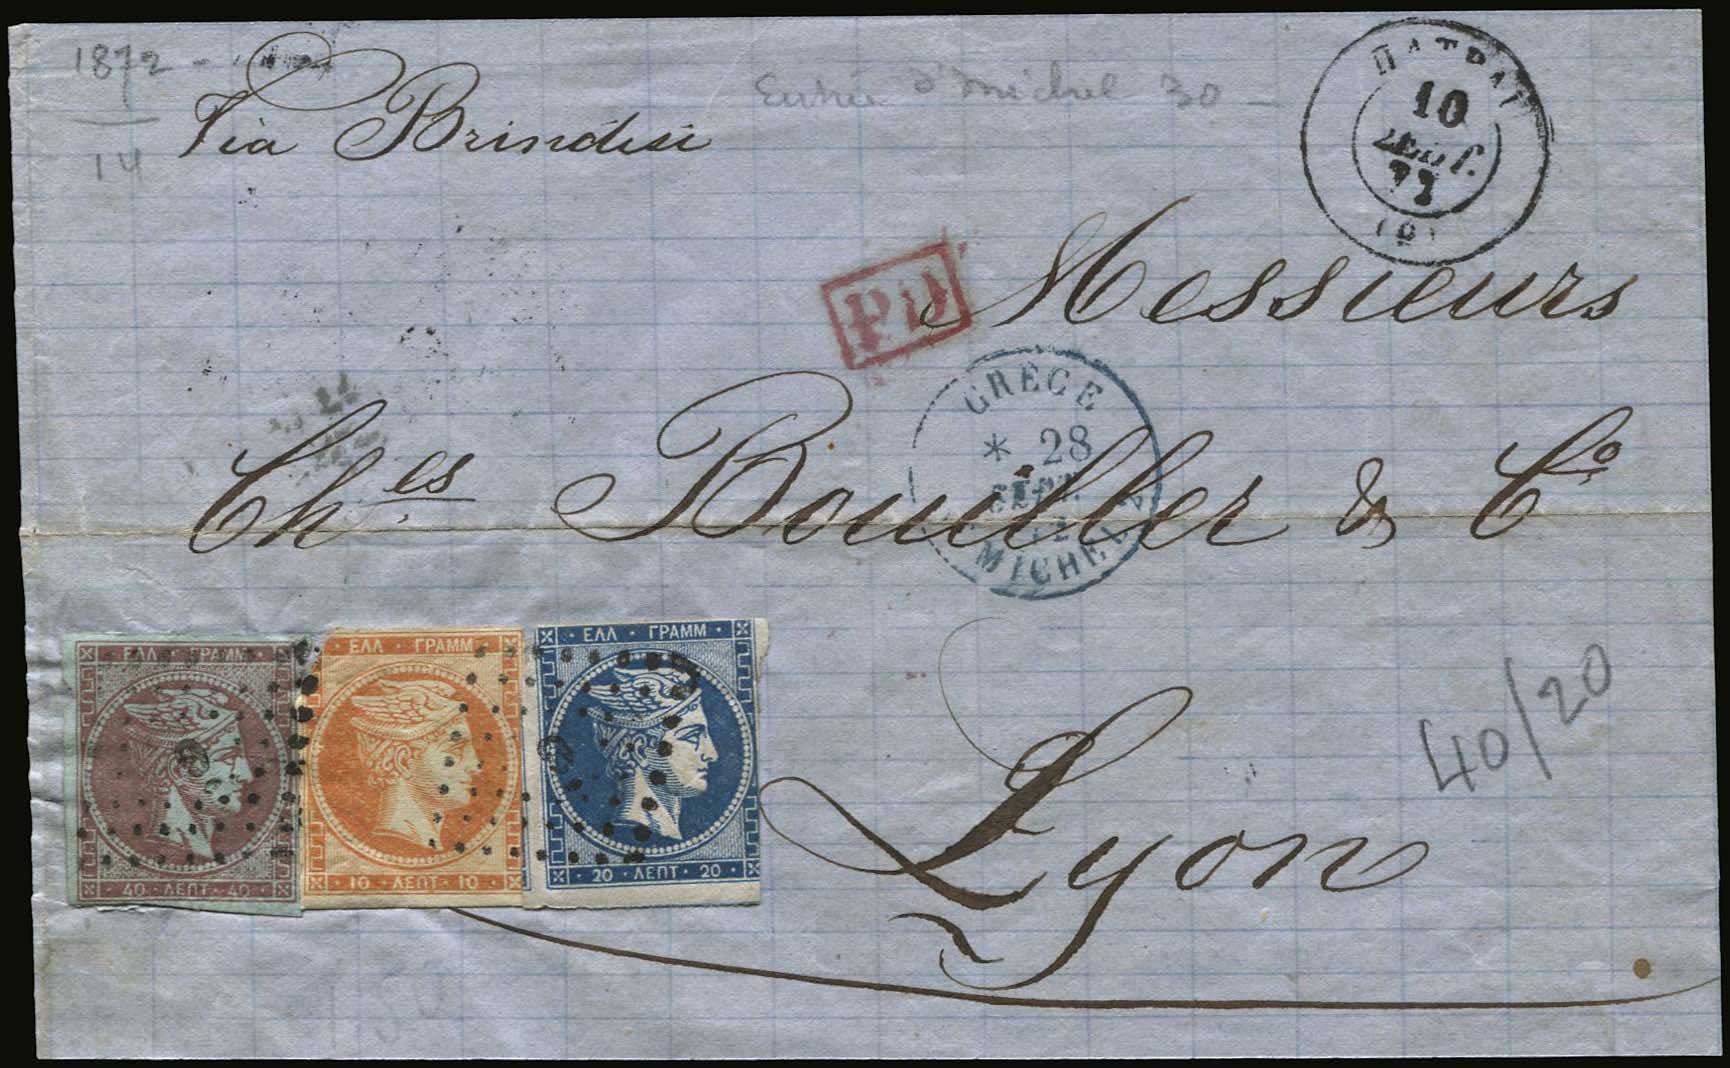 1872
14
Via Brindisi
Entrée d'Michel 30
ΠΑΤΡΑΙ
10
ΣΕΠΤ.
72
(9)
PD
Messieurs
GRECE
* 28
SEPT.
72
MICHEL
Ch.es Bouiller & Co
ΕΛΛ · ΓΡΑΜΜ
40 · ΛΕΠΤ · 40
ΕΛΛ · ΓΡΑΜΜ
10 · ΛΕΠΤ · 10
ΕΛΛ · ΓΡΑΜΜ
20 · ΛΕΠΤ · 20
9
9
Lyon
40/20